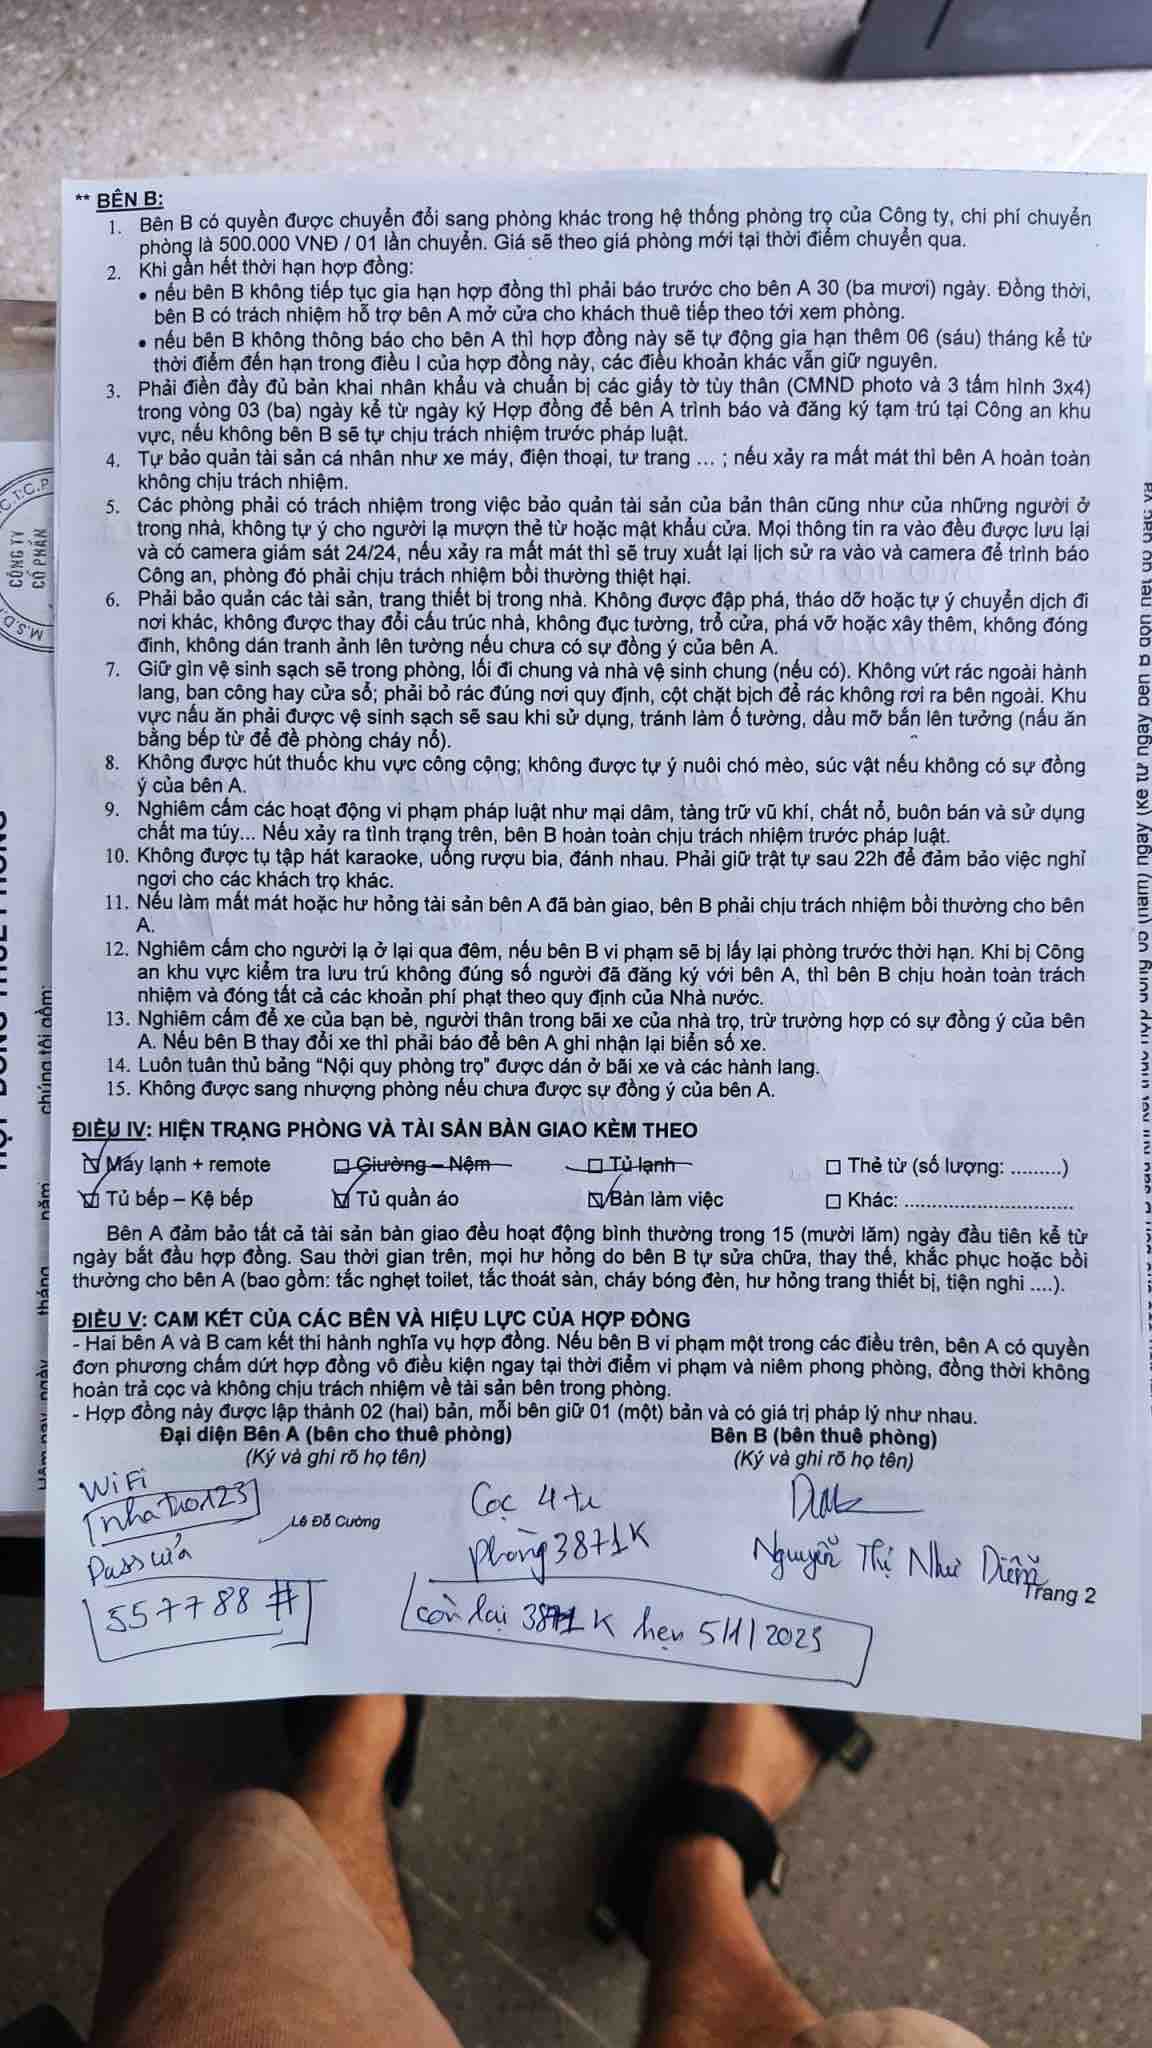 ** BÊN B:
1. Bên B có quyền được chuyển đổi sang phòng khác trong hệ thống phòng trọ của Công ty, chi phí chuyển
phòng là 500.000 VNĐ / 01 lần chuyển. Giá sẽ theo giá phòng mới tại thời điểm chuyển qua.
2. Khi gần hết thời hạn hợp đồng:
• nếu bên B không tiếp tục gia hạn hợp đồng thì phải báo trước cho bên A 30 (ba mươi) ngày. Đồng thời,
bên B có trách nhiệm hỗ trợ bên A mở cửa cho khách thuê tiếp theo tới xem phòng.
• nếu bên B không thông báo cho bên A thì hợp đồng này sẽ tự động gia hạn thêm 06 (sáu) tháng kể từ
thời điểm đến hạn trong điều I của hợp đồng này, các điều khoản khác vẫn giữ nguyên.
3. Phải điền đầy đủ bản khai nhân khẩu và chuẩn bị các giấy tờ tùy thân (CMND photo và 3 tấm hình 3x4)
trong vòng 03 (ba) ngày kể từ ngày ký Hợp đồng để bên A trình báo và đăng ký tạm trú tại Công an khu
vực, nếu không bên B sẽ tự chịu trách nhiệm trước pháp luật.
4. Tự bảo quản tài sản cá nhân như xe máy, điện thoại, tư trang ... ; nếu xảy ra mất mát thì bên A hoàn toàn
không chịu trách nhiệm.
5. Các phòng phải có trách nhiệm trong việc bảo quản tài sản của bản thân cũng như của những người ở
trong nhà, không tự ý cho người lạ mượn thẻ từ hoặc mật khẩu cửa. Mọi thông tin ra vào đều được lưu lại
và có camera giám sát 24/24, nếu xảy ra mất mát thì sẽ truy xuất lại lịch sử ra vào và camera để trình báo
Công an, phòng đó phải chịu trách nhiệm bồi thường thiệt hại.
6. Phải bảo quản các tài sản, trang thiết bị trong nhà. Không được đập phá, tháo dỡ hoặc tự ý chuyển dịch đi
nơi khác, không được thay đổi cấu trúc nhà, không đục tường, trổ cửa, phá vỡ hoặc xây thêm, không đóng
đinh, không dán tranh ảnh lên tường nếu chưa có sự đồng ý của bên A.
7. Giữ gìn vệ sinh sạch sẽ trong phòng, lối đi chung và nhà vệ sinh chung (nếu có). Không vứt rác ngoài hành
lang, ban công hay cửa sổ; phải bỏ rác đúng nơi quy định, cột chặt bịch để rác không rơi ra bên ngoài. Khu
vực nấu ăn phải được vệ sinh sạch sẽ sau khi sử dụng, tránh làm ố tường, dầu mỡ bắn lên tưởng (nấu ăn
bằng bếp từ để đề phòng cháy nổ).
8. Không được hút thuốc khu vực công cộng; không được tự ý nuôi chó mèo, súc vật nếu không có sự đồng
ý của bên A.
9. Nghiêm cấm các hoạt động vi phạm pháp luật như mại dâm, tàng trữ vũ khí, chất nổ, buôn bán và sử dụng
chất ma túy... Nếu xảy ra tình trạng trên, bên B hoàn toàn chịu trách nhiệm trước pháp luật.
10. Không được tụ tập hát karaoke, uống rượu bia, đánh nhau. Phải giữ trật tự sau 22h để đảm bảo việc nghỉ
ngơi cho các khách trọ khác.
11. Nếu làm mất mát hoặc hư hỏng tài sản bên A đã bàn giao, bên B phải chịu trách nhiệm bồi thường cho bên
A.
12. Nghiêm cấm cho người lạ ở lại qua đêm, nếu bên B vi phạm sẽ bị lấy lại phòng trước thời hạn. Khi bị Công
an khu vực kiểm tra lưu trú không đúng số người đã đăng ký với bên A, thì bên B chịu hoàn toàn trách
nhiệm và đóng tất cả các khoản phí phạt theo quy định của Nhà nước.
13. Nghiêm cấm để xe của bạn bè, người thân trong bãi xe của nhà trọ, trừ trường hợp có sự đồng ý của bên
A. Nếu bên B thay đổi xe thì phải báo để bên A ghi nhận lại biển số xe.
14. Luôn tuân thủ bảng "Nội quy phòng trọ" được dán ở bãi xe và các hành lang.
15. Không được sang nhượng phòng nếu chưa được sự đồng ý của bên A.
ĐIỀU IV: HIỆN TRẠNG PHÒNG VÀ TÀI SẢN BÀN GIAO KÈM THEO
Máy lạnh + remote Giường – Nệm Tủ lạnh Thẻ từ (số lượng: .........)
Tủ bếp – Kệ bếp Tủ quần áo Bàn làm việc Khác: ..........................
Bên A đảm bảo tất cả tài sản bàn giao đều hoạt động bình thường trong 15 (mười lăm) ngày đầu tiên kể từ
ngày bắt đầu hợp đồng. Sau thời gian trên, mọi hư hỏng do bên B tự sửa chữa, thay thế, khắc phục hoặc bồi
thường cho bên A (bao gồm: tắc nghẹt toilet, tắc thoát sàn, cháy bóng đèn, hư hỏng trang thiết bị, tiện nghi ....).
ĐIỀU V: CAM KẾT CỦA CÁC BÊN VÀ HIỆU LỰC CỦA HỢP ĐỒNG
- Hai bên A và B cam kết thi hành nghĩa vụ hợp đồng. Nếu bên B vi phạm một trong các điều trên, bên A có quyền
đơn phương chấm dứt hợp đồng vô điều kiện ngay tại thời điểm vi phạm và niêm phong phòng, đồng thời không
hoàn trả cọc và không chịu trách nhiệm về tài sản bên trong phòng.
- Hợp đồng này được lập thành 02 (hai) bản, mỗi bên giữ 01 (một) bản và có giá trị pháp lý như nhau.
Đại diện Bên A (bên cho thuê phòng) Bên B (bên thuê phòng)
(Ký và ghi rõ họ tên) (Ký và ghi rõ họ tên)
WiFi
nhatro123
Lê Đỗ Cường
Pass cửa
557788 #
Cọc 4tr
phòng 3871K
còn lại 3871K hẹn 5/1/2023
Nguyễn Thị Như Diễm
Trang 2
CÔNG TY
CỔ PHẦN